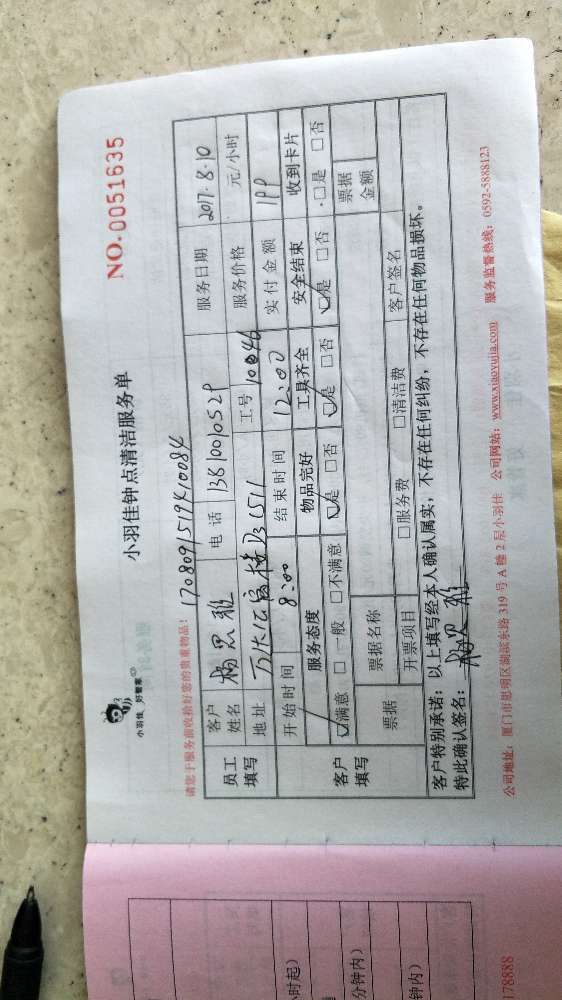 小羽佳 好管家
小羽佳钟点清洁服务单
NO.0051635
请您于服务前收拾好您的贵重物品！ 1708091519410084
员工填写
客户姓名 杨思雅 电话 服务日期 2017.8.10
地址 D3 1511 工号 10046 服务价格 元/小时
开始时间 8:00 结束时间 12:00 实付金额
客户填写
服务态度 物品完好 工具齐全 安全结束 收到卡片
☑满意 □一般 □不满意 ☑是 □否 ☑是 □否 ☑是 □否 □是 □否
票据 票据名称 票据金额
开票项目 □服务费 □清洁费 客户签名
客户特别承诺：以上填写经本人确认属实，不存在任何纠纷，不存在任何物品损坏。
特此确认签名：杨思雅
公司地址：厦门市思明区湖滨东路 319 号 A 幢 2 层小羽佳 公司网站：www.xiaoyujia.com 服务监督热线：0592-5888123
时起）
分钟内）
钟内）
78888